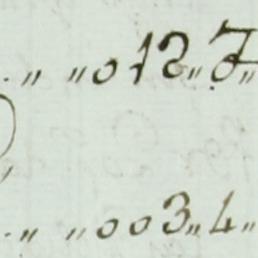 .„ „012„7„
.„ „003„4„